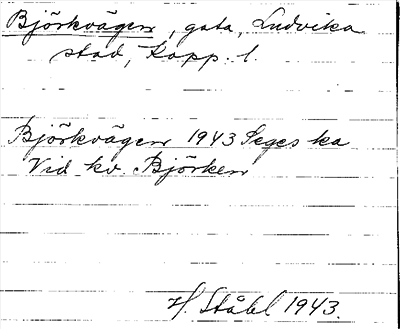 Björkvägen, gata, Ludvika
stad, Kopp. l.
Björkvägen 1943 Seges ka
Vid kv. Björken
H. Ståhl 1943.